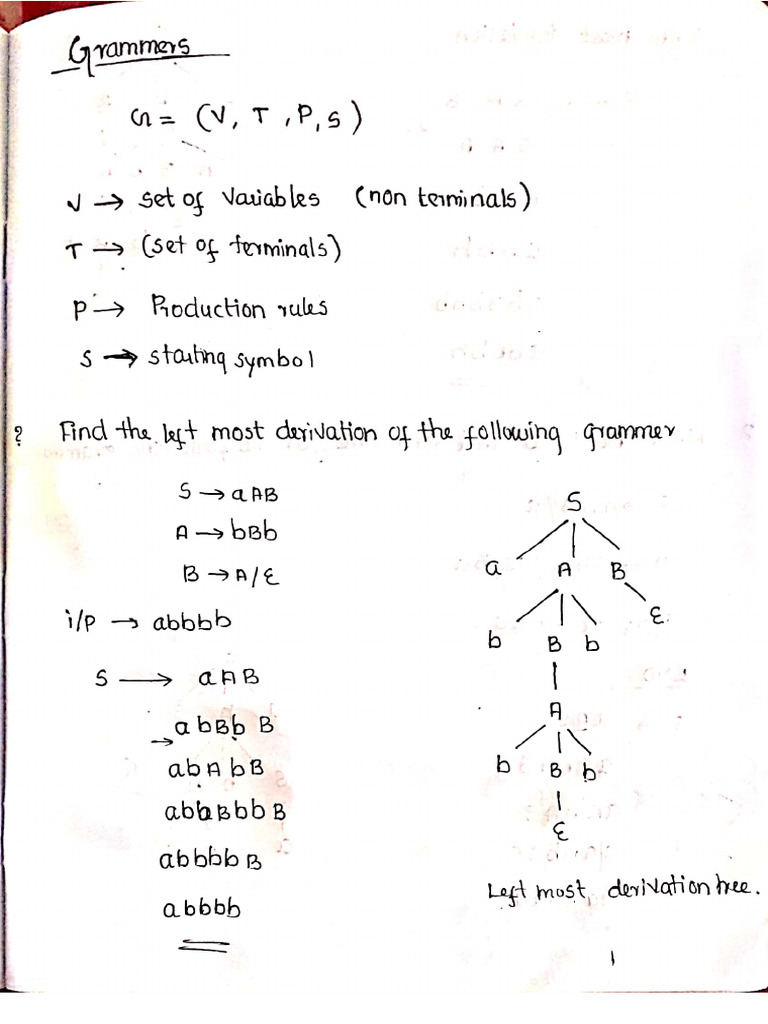 Grammers
G = (V, T, P, S)
V → set of Variables (non terminals)
T → (set of terminals)
P → Production rules
S → starting symbol
? Find the left most derivation of the following grammer
S → aAB
A → bBb
B → A/ε
i/p → abbbb
S → aAB
→ abBbB
abAbB
abbBbbB
abbbbB
abbbb
S
a A B
b B b ε
A
b B b
ε
Left most derivation tree.
1